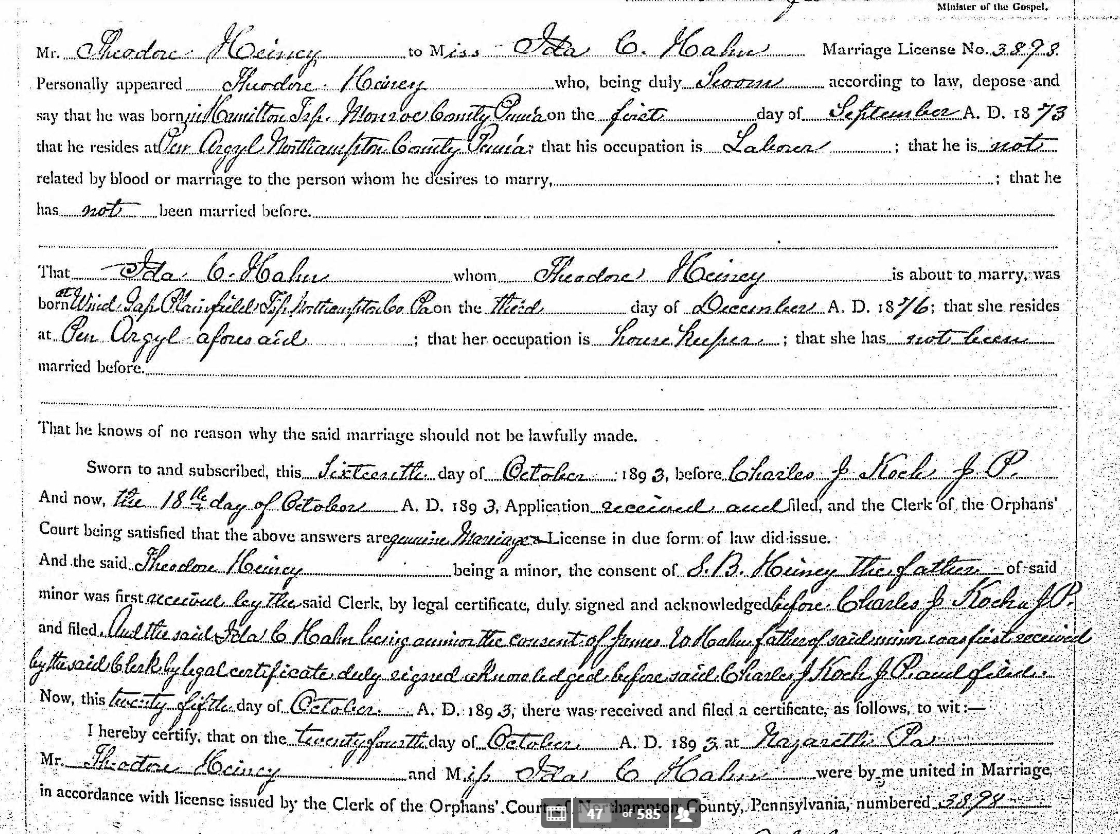 Minister of the Gospel.
Mr. Theodore Heiney to Miss Ida C. Hahn Marriage License No. 3898
Personally appeared Theodore Heiney who, being duly Sworn according to law, depose and
say that he was born in Hamilton Tsp. Monroe County Penn'a on the first day of September A. D. 1873
that he resides at Pen Argyl Northampton County Penn'a; that his occupation is Laborer ; that he is not
related by blood or marriage to the person whom he desires to marry, ; that he
has not been married before.
That Ida C. Hahn whom Theodore Heiney is about to marry, was
born at Wind Gap Plainfield Tsp Northampton Co Pa on the third day of December A. D. 1876; that she resides
at Pen Argyl aforesaid ; that her occupation is house keeper ; that she has not been
married before.
That he knows of no reason why the said marriage should not be lawfully made.
Sworn to and subscribed, this Sixteenth day of October 1893, before Charles J Koch J. P.
And now, the 18th day of October A. D. 1893, Application received and filed, and the Clerk of the Orphans'
Court being satisfied that the above answers are genuine Marriage License in due form of law did issue.
And the said Theodore Heiney being a minor, the consent of S. B. Heiney the father of said
minor was first received by the said Clerk, by legal certificate, duly signed and acknowledged before Charles J Koch a J. P.
and filed. And the said Ida C Hahn being a minor the consent of James W Hahn father of said minor was first received
by the said Clerk by legal certificate duly signed acknowledged before said Charles J Koch J. P. and filed.
Now, this twenty fifth day of October A. D. 1893, there was received and filed a certificate, as follows, to wit:—
I hereby certify, that on the twenty fourth day of October A. D. 1893 at Nazareth Pa
Mr. Theodore Heiney and Miss Ida C Hahn were by me united in Marriage,
in accordance with license issued by the Clerk of the Orphans' Court of Northampton County, Pennsylvania, numbered 3898
47 of 585